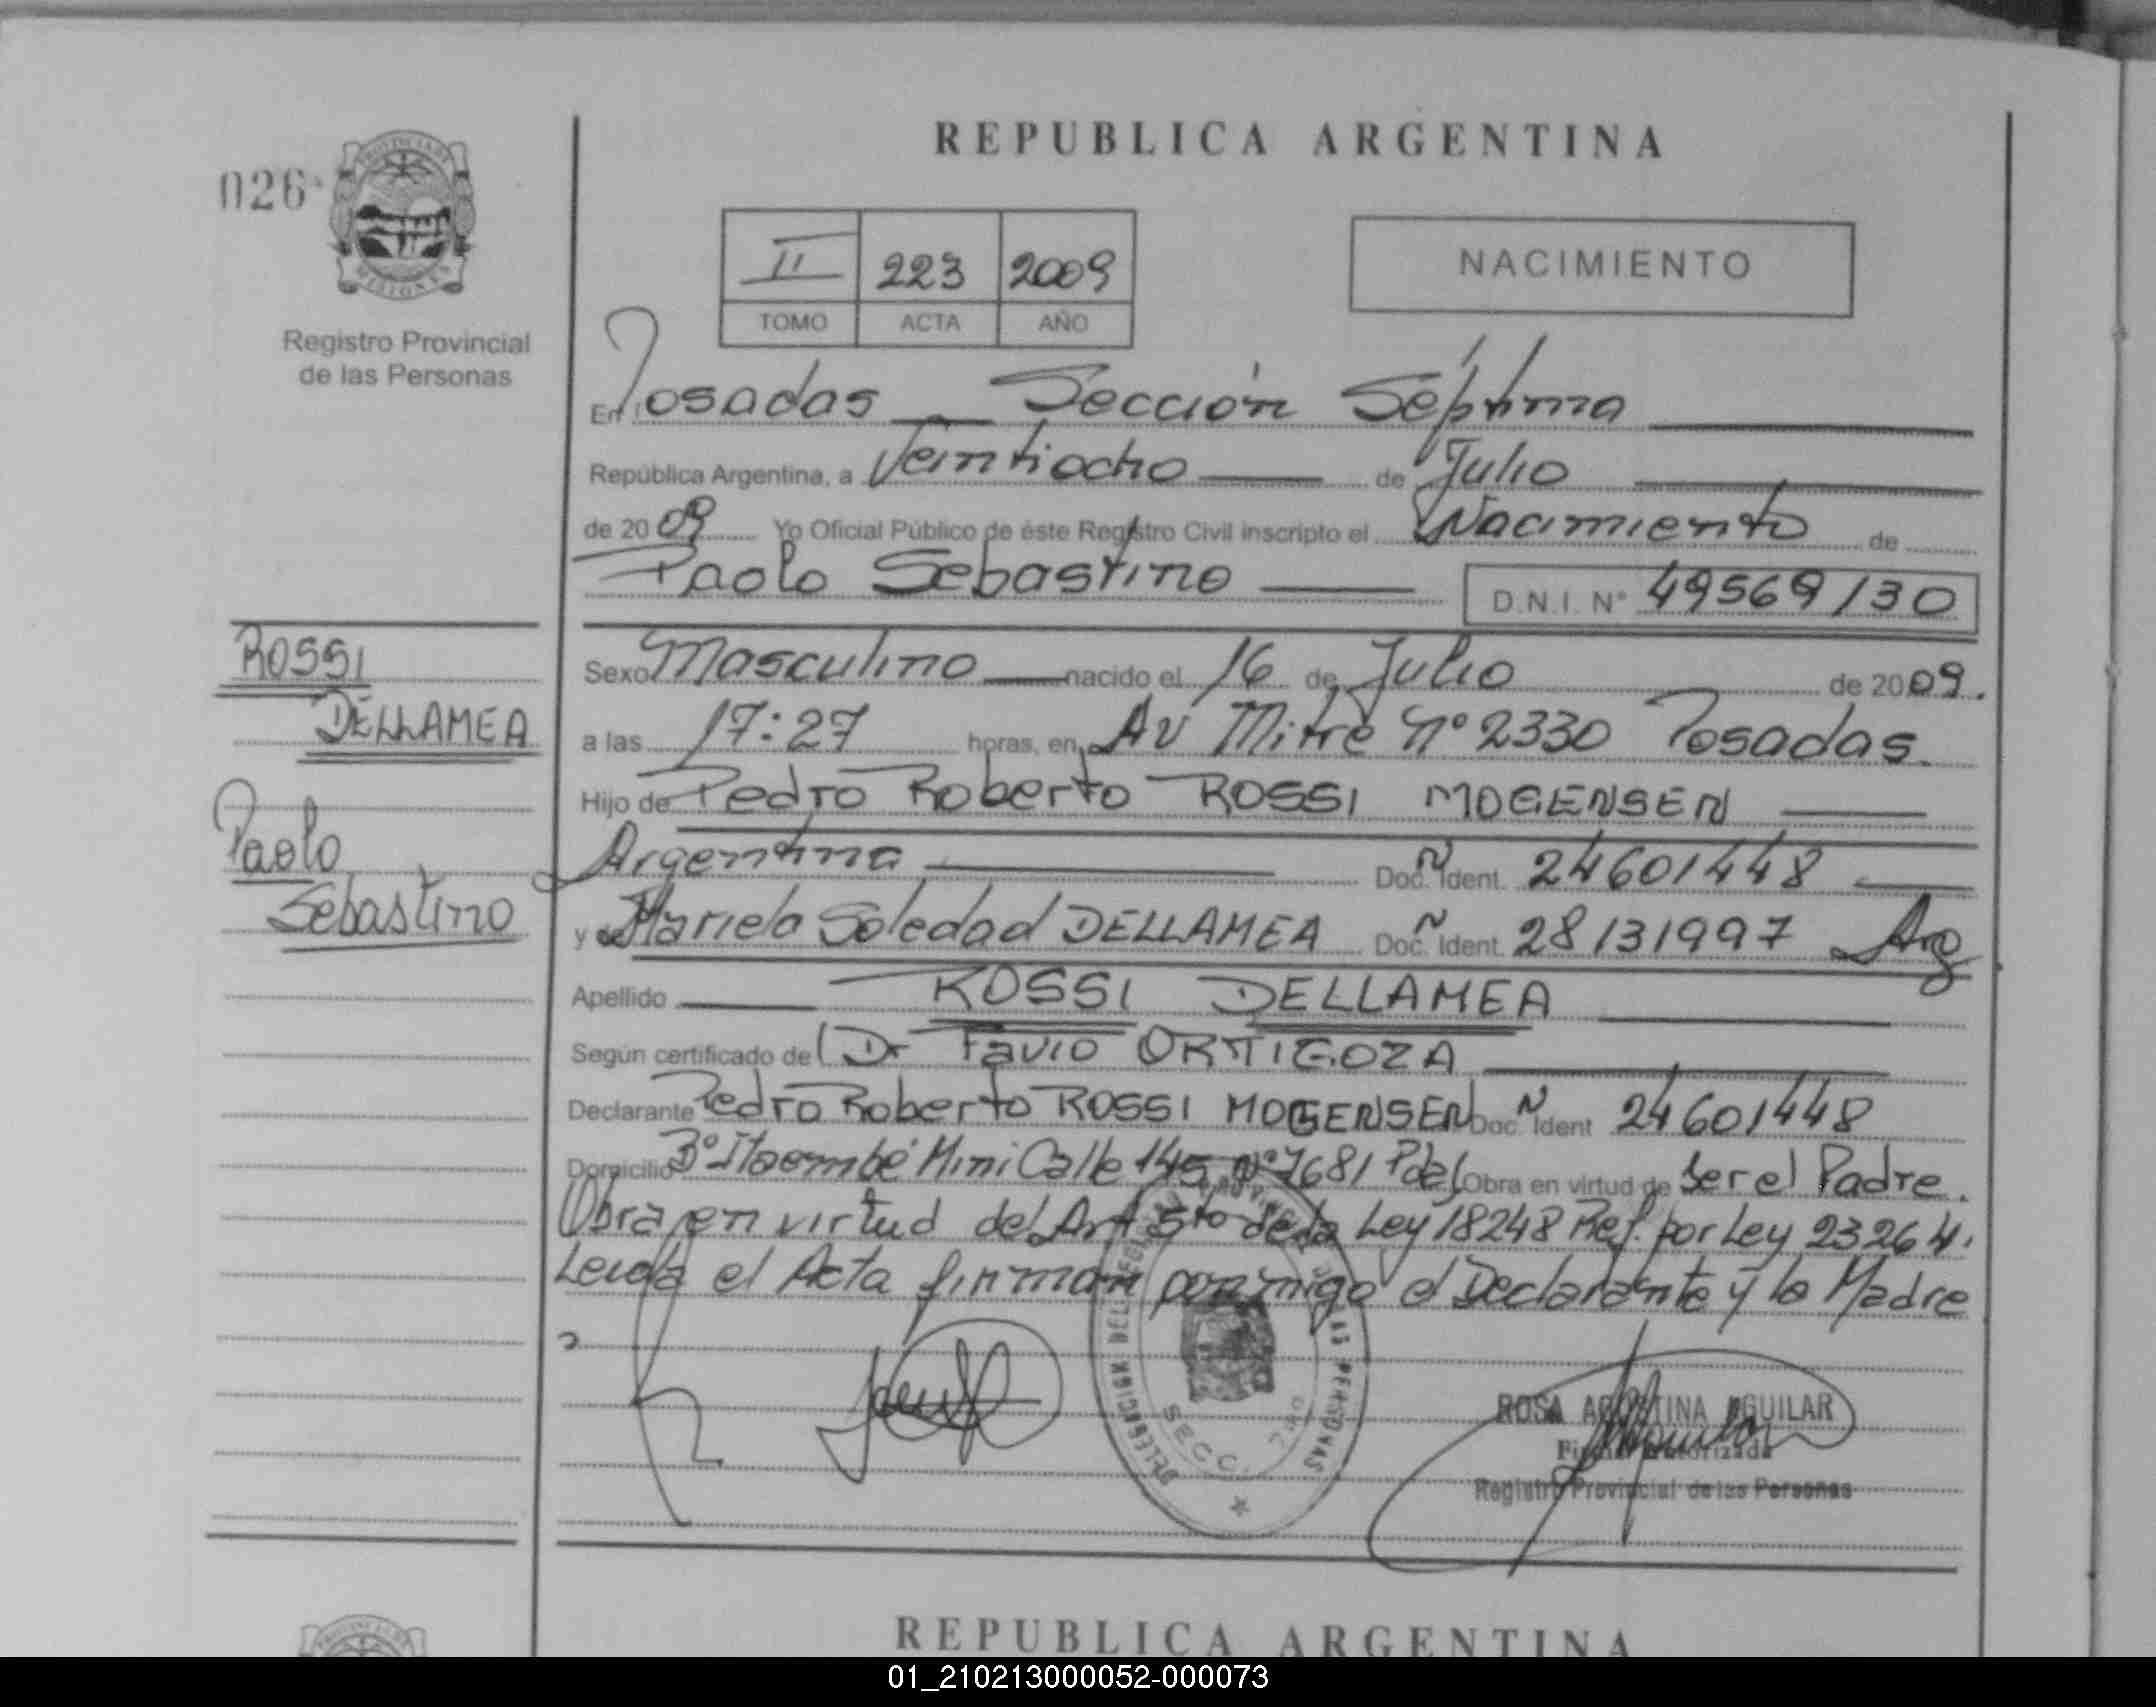 REPUBLICA ARGENTINA
026
PROVINCIA DE
MISIONES
Registro Provincial
de las Personas
II 223 2009
TOMO ACTA AÑO
NACIMIENTO
En Posadas Sección Séptima
República Argentina, a Veintiocho de Julio
de 2009 Yo Oficial Público de éste Registro Civil inscripto el Nacimiento de
Paolo Sebastino D.N.I. Nº 49569130
ROSSI
DELLAMEA
Paolo
Sebastino
Sexo Masculino nacido el 16 de Julio de 2009.
a las 17:27 horas, en Av Mitre Nº 2330 Posadas.
Hijo de Pedro Roberto ROSSI MOGENSEN
Argentina Doc. Ident. 24601448
y de Mariela Soledad DELLAMEA Doc. Ident. 28131997 Arg
Apellido ROSSI DELLAMEA
Según certificado del Dr Favio ORTIGOZA
Declarante Pedro Roberto ROSSI MOGENSEN Doc. Ident 24601448
Domicilio Bº Itaembé Mini Calle 145 Nº 7681 Obra en virtud de Ser el Padre.
Obra en virtud del Art 5to de la Ley 18248 Ref. por Ley 23264.
Leida el Acta firman conmigo el Declarante y la Madre
DELEGACION DEL REGISTRO PROVINCIAL DE LAS PERSONAS
SECC. 7ma
ROSA AGUSTINA AGUILAR
Firma Autorizada
Registro Provincial de las Personas
REPUBLICA ARGENTINA
01_210213000052-000073